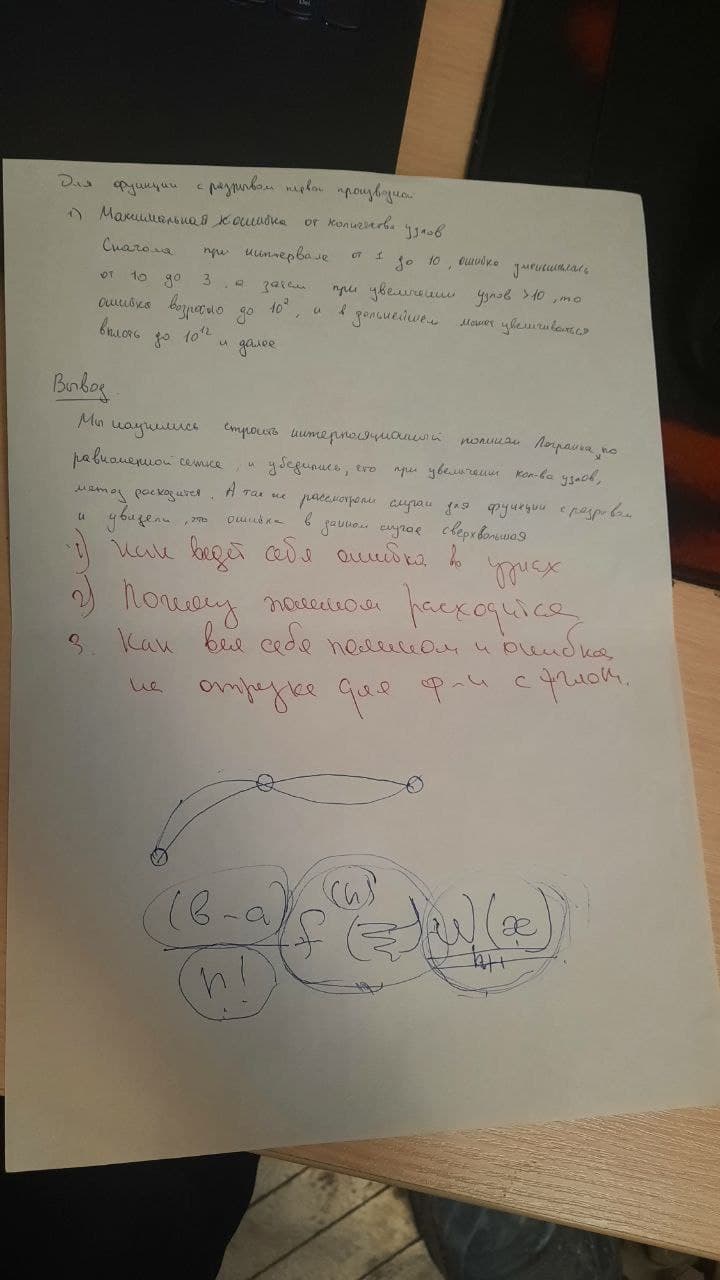 Для функции с разрывом первой производной
1) Максимальная ошибка от количества узлов
Сначала при интервале от 1 до 10, ошибка уменьшилась
от 10 до 3, а затем при увеличении узлов >10, то
ошибка возросло до 10², и в дальнейшем может увеличиваться
вплоть до 10¹² и далее
Вывод.
Мы научились строить интерполяционный полином Лагранжа, по
равномерной сетке, и убедились, что при увеличении кол-ва узлов,
метод расходится. А так же рассмотрели случаи для функции с разрывом
и увидели, что ошибка в данном случае сверхбольшая
1) Как ведёт себя ошибка в узлах
2) Почему полином расходится
3. Как вел себе полином и ошибка
на отрезке для ф-и с
(b-a) f (n) (ξ) W (x)
n! n+1